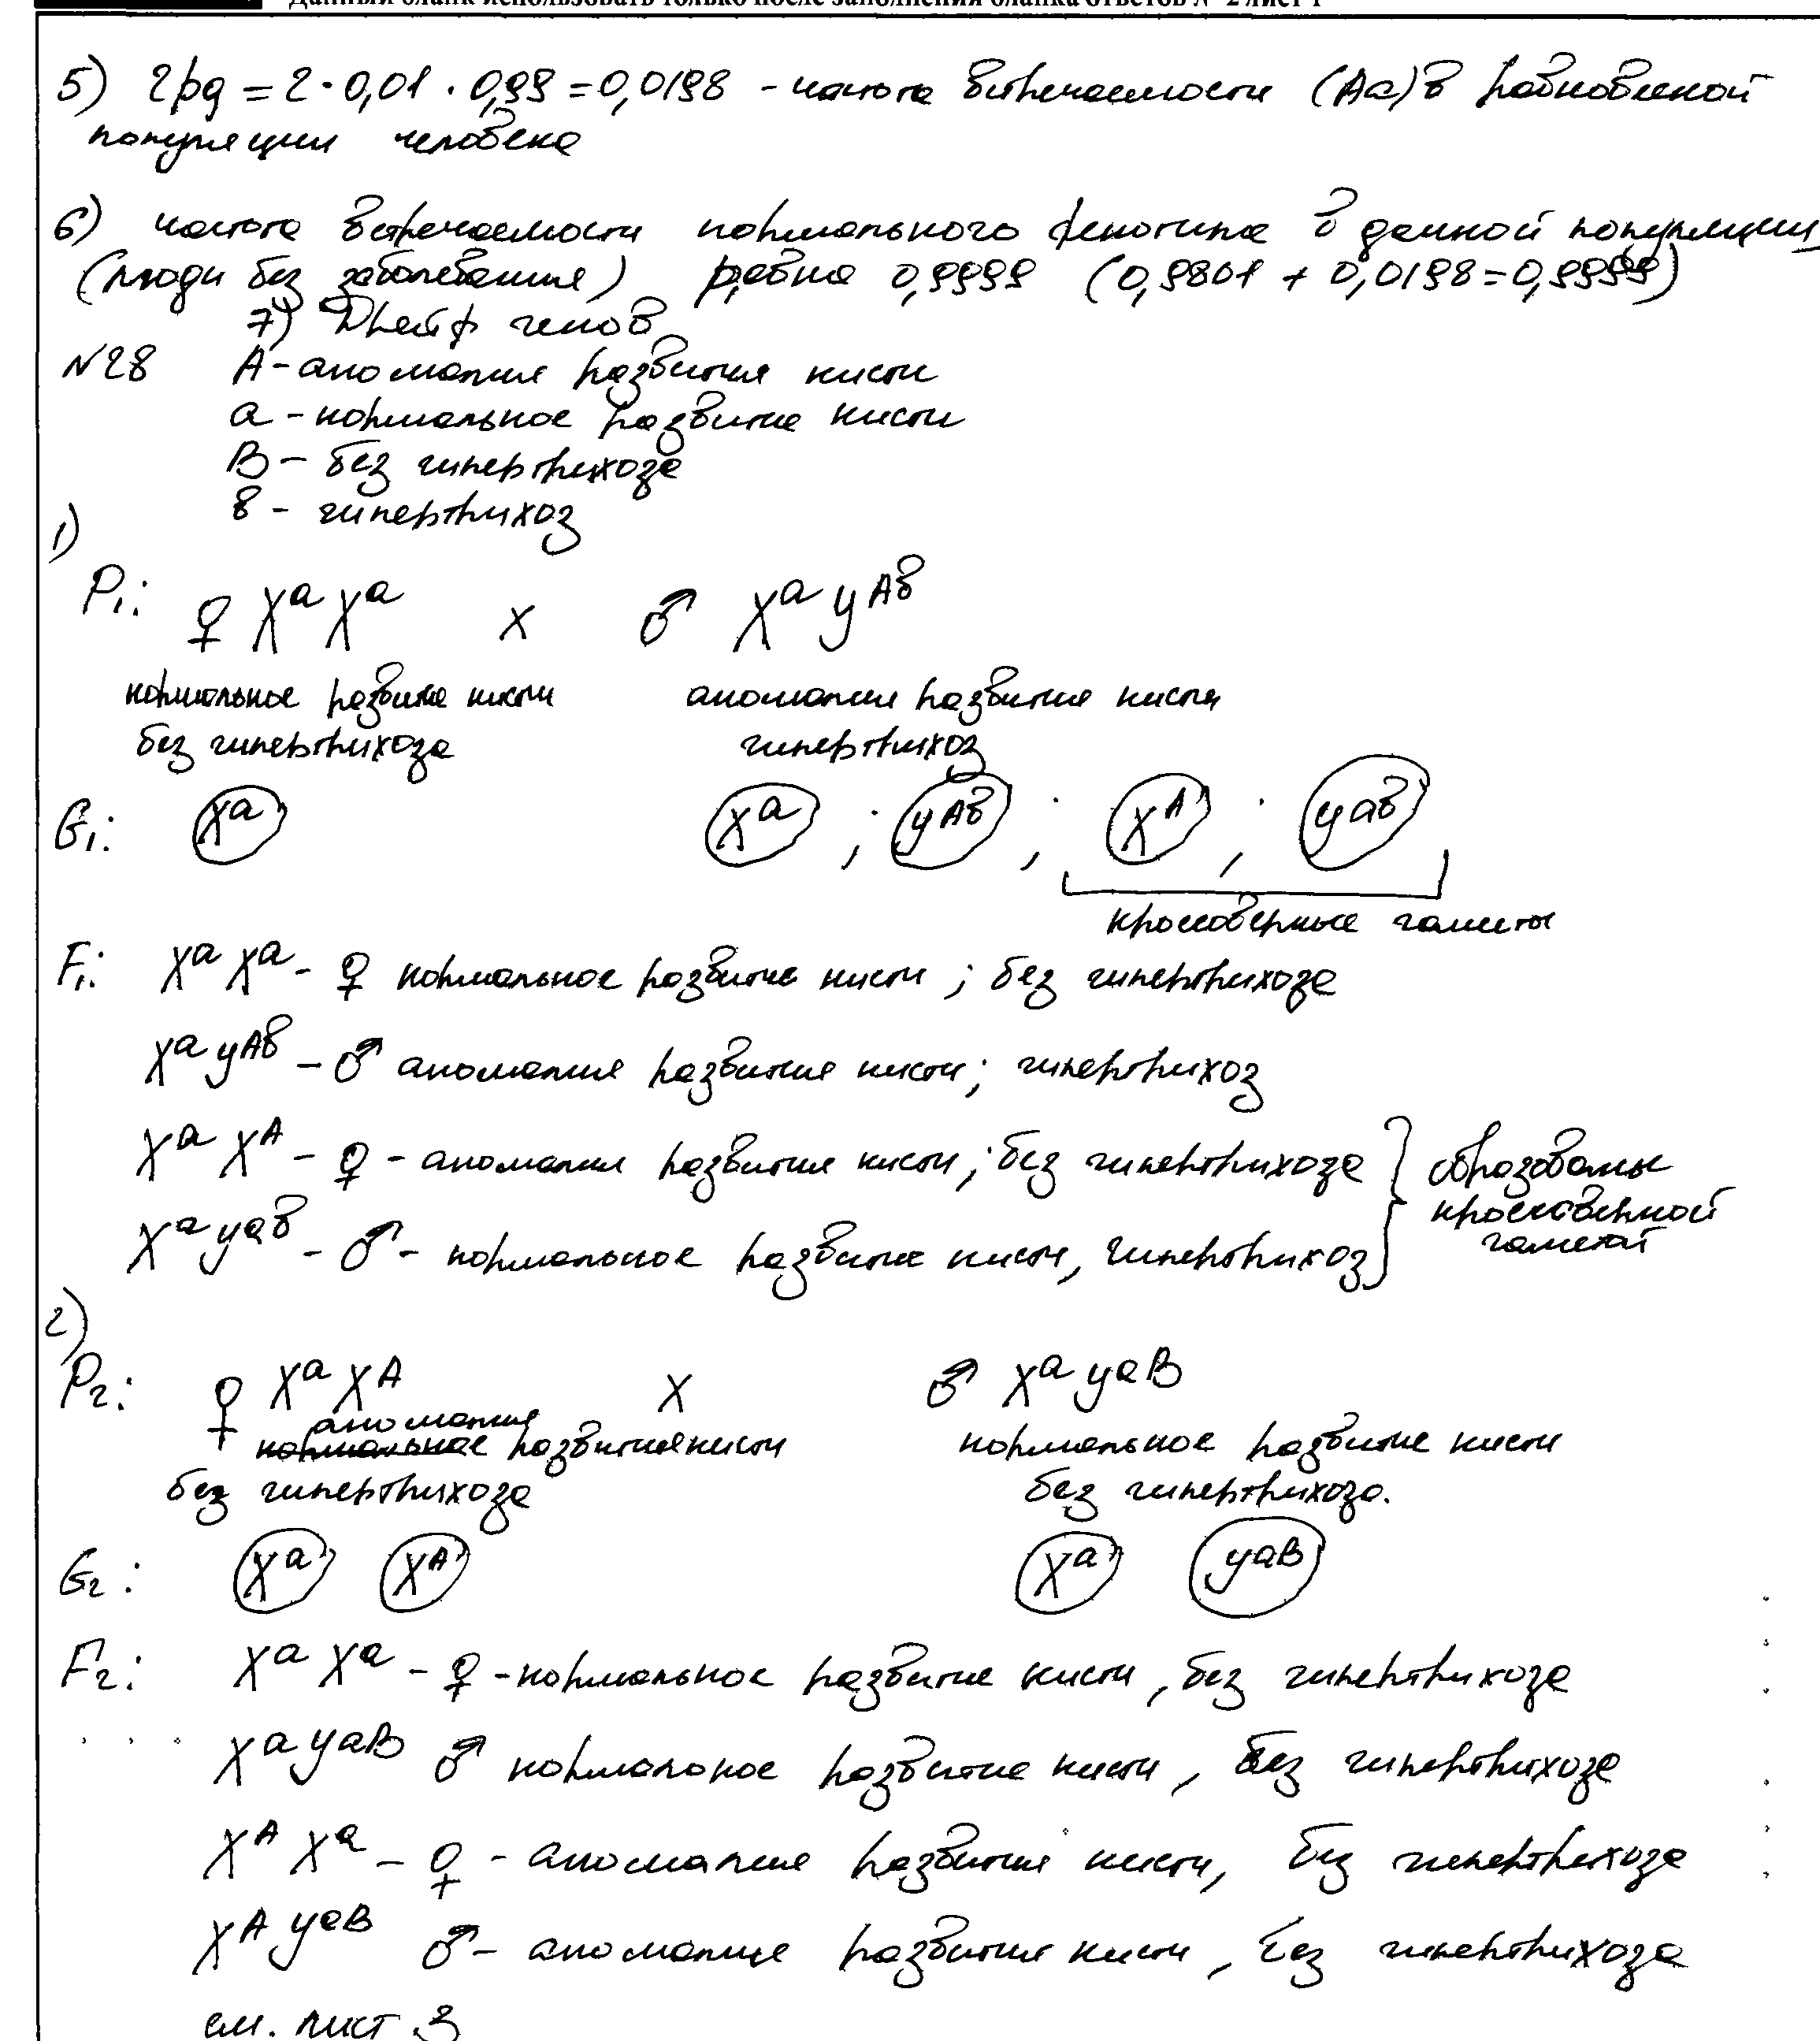 Данный бланк использовать только после заполнения бланка ответов № 2 лист 1
5) 2pq = 2 · 0,01 · 0,99 = 0,0198 - частота встречаемости (Aa) в равновесной
популяции человека
6) частота встречаемости нормального фенотипа в данной популяции
(люди без заболевания) равна 0,9999 (0,9801 + 0,0198 = 0,9999)
7) Дрейф генов
№28 A - аномалия развития кисти
a - нормальное развитие кисти
B - без гипертрихоза
в - гипертрихоз
1)
P₁: ♀ Xᵃ Xᵃ x ♂ Xᵃ Yᴬᵇ
нормальное развитие кисти аномалия развития кисти
без гипертрихоза гипертрихоз
G₁: Xᵃ Xᵃ ; Yᴬᵇ ; Xᴬ ; Yᵃᵇ
кроссоверные гаметы
F₁: Xᵃ Xᵃ - ♀ нормальное развитие кисти ; без гипертрихоза
Xᵃ Yᴬᵇ - ♂ аномалия развития кисти; гипертрихоз
Xᵃ Xᴬ - ♀ - аномалия развития кисти; без гипертрихоза } образованы
Xᵃ Yᵃᵇ - ♂ - нормальное развитие кисти, гипертрихоз } кроссоверной
гаметой
2)
P₂: ♀ Xᵃ Xᴬ x ♂ Xᵃ Yᵃᴮ
аномалия
нормальное развития кисти нормальное развитие кисти
без гипертрихоза без гипертрихоза.
G₂: Xᵃ Xᴬ Xᵃ Yᵃᴮ
F₂: Xᵃ Xᵃ - ♀ - нормальное развитие кисти, без гипертрихоза
Xᵃ Yᵃᴮ ♂ нормальное развитие кисти, без гипертрихоза
Xᴬ Xᵃ - ♀ - аномалия развития кисти, без гипертрихоза
Xᴬ Yᵃᴮ ♂ - аномалия развития кисти, без гипертрихоза
см. лист 3